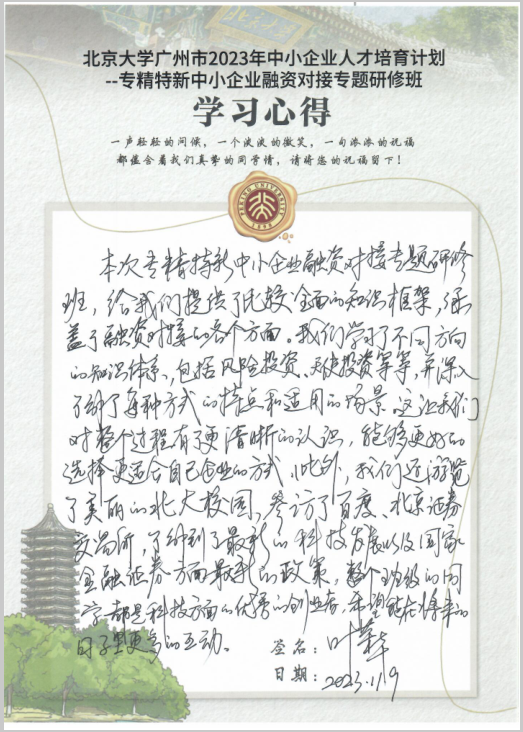 北京大学广州市2023年中小企业人才培育计划
--专精特新中小企业融资对接专题研修班
学习心得
一声轻轻的问候，一个淡淡的微笑，一句浓浓的祝福
都蕴含着我们真挚的同学情，请将您的祝福留下！
PEKING UNIVERSITY
1898
本次专精特新中小企业融资对接专题研修
班，给我们提供了比较全面的知识框架，涵
盖了融资对接的各个方面。我们学习了不同方向
的知识体系，包括风险投资、天使投资等等，并深入
了解了每种方式的特点和适用的场景。这让我们
对整个过程有了更清晰的认识，能够更好的
选择更适合自己企业的方式。此外，我们还游览
了美丽的北大校园，参访了百度、北京证券
交易所，了解到了最新的科技发展以及国家
金融证券方面最新的政策，整个班级的同
学都是科技方面的优秀的创业者，希望能在将来的
日子里更多的互动。
签名：叶
日期：2023.11/9